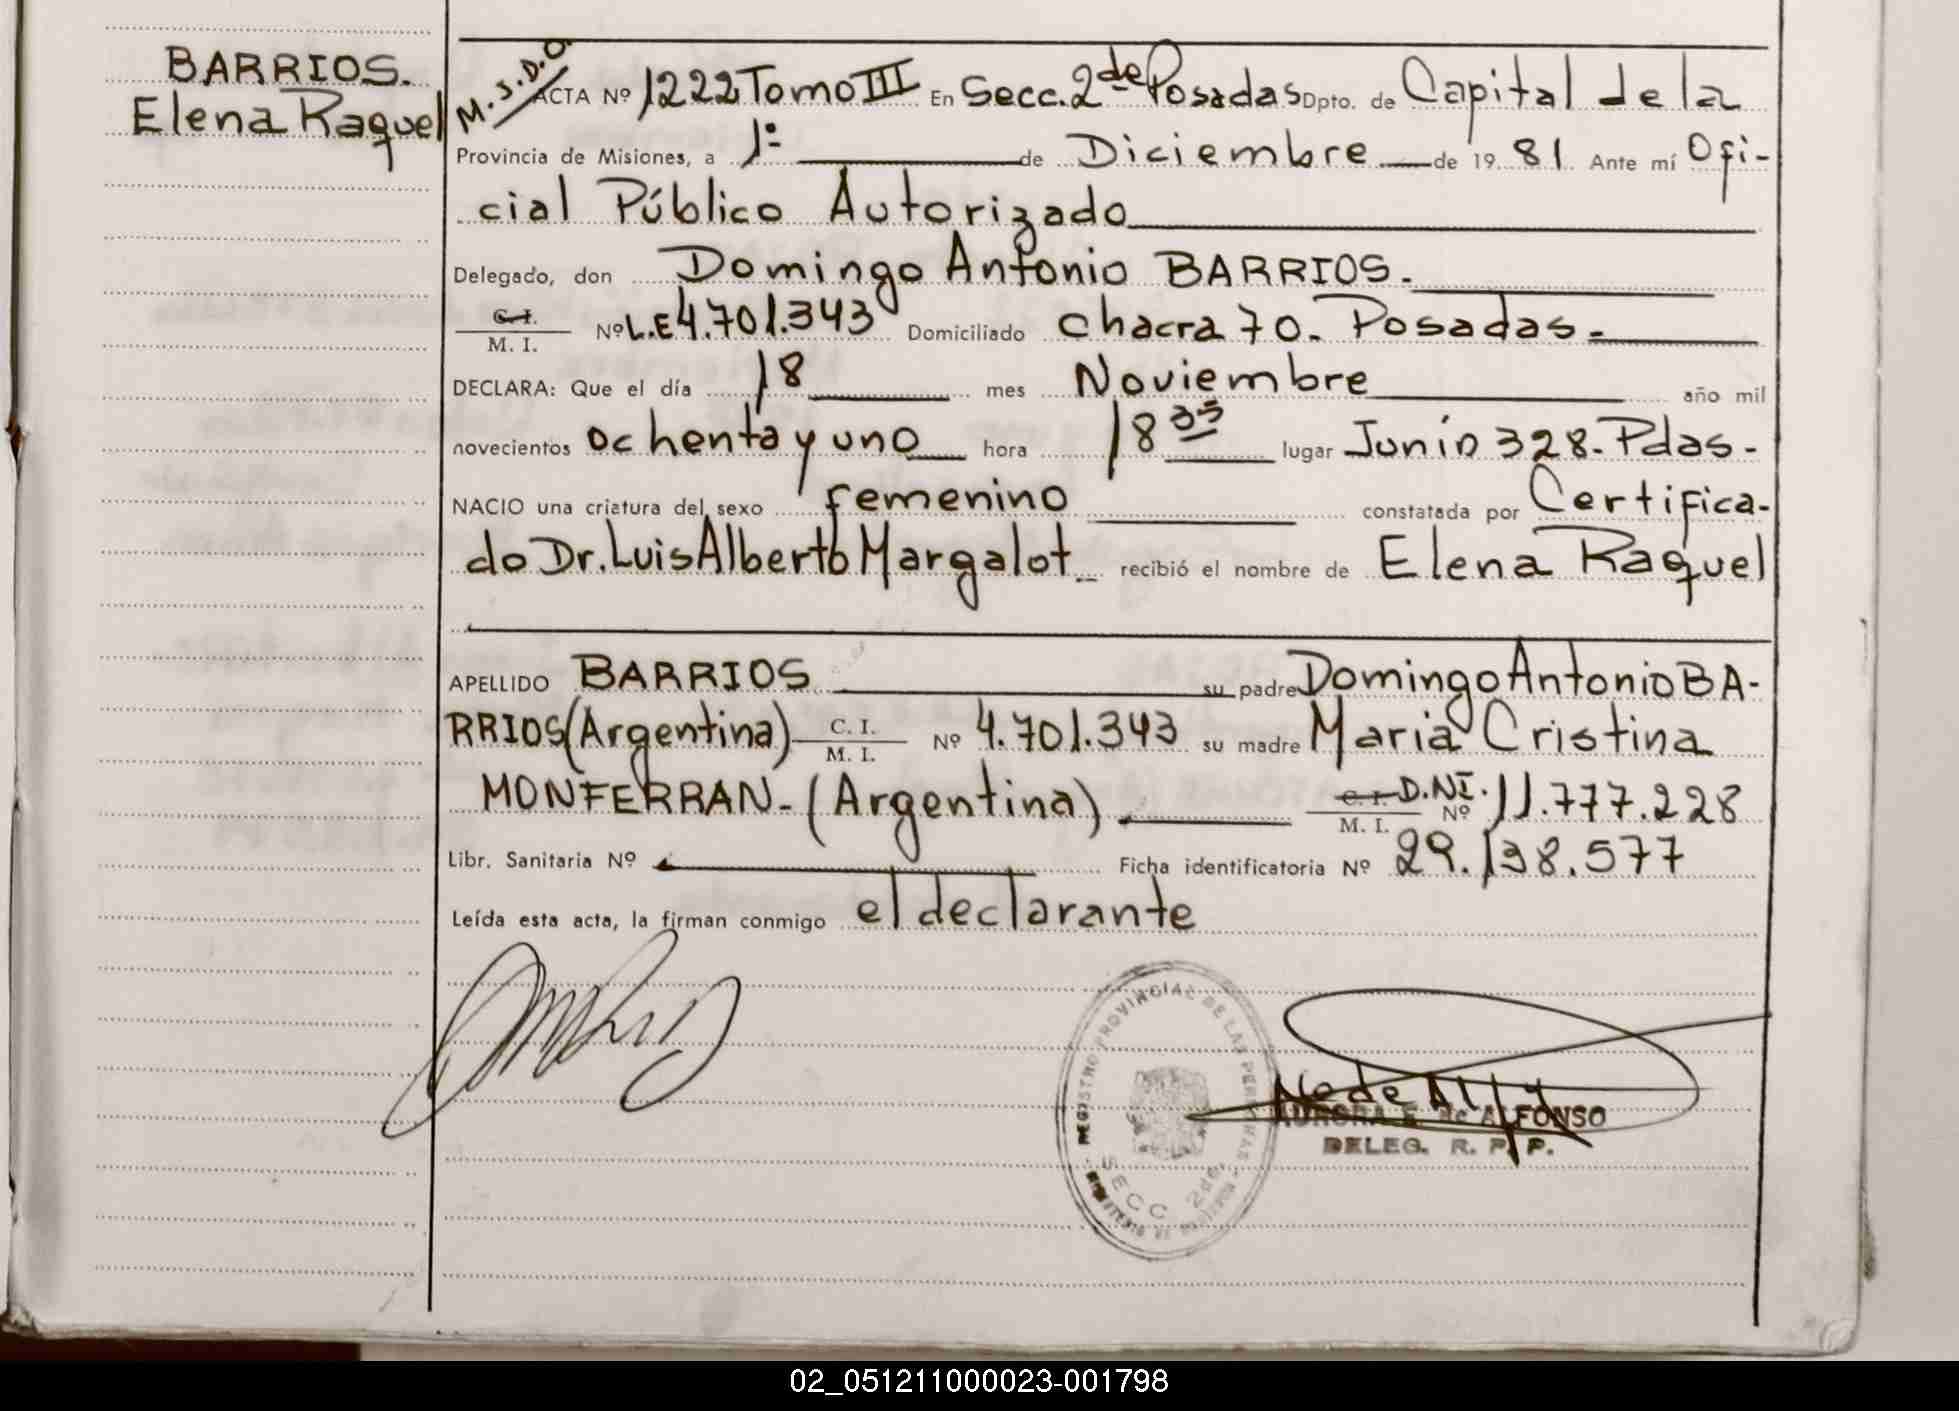 BARRIOS.
Elena Raquel
M.S.D.O.
ACTA Nº 1222 Tomo III En Secc. 2da Posadas Dpto. de Capital de la
Provincia de Misiones, a 1º de Diciembre de 19 81 Ante mí Ofi-
cial Público Autorizado
Delegado, don Domingo Antonio BARRIOS.-
C.I. / M. I. Nº L.E 4.701.343 Domiciliado chacra 70.- Posadas.-
DECLARA: Que el día 18 mes Noviembre año mil
novecientos ochenta y uno hora 18 35 lugar Junín 328.- Pdas-
NACIO una criatura del sexo femenino constatada por Certifica-
do Dr. Luis Alberto Margalot recibió el nombre de Elena Raquel
APELLIDO BARRIOS su padre Domingo Antonio BA-
RRIOS (Argentina) C. I. / M. I. Nº 4.701.343 su madre María Cristina
MONFERRAN- (Argentina) C. I. / M. I. D.NI. Nº 11.777.228
Libr. Sanitaria Nº Ficha identificatoria Nº 29.138.577
Leída esta acta, la firman conmigo el declarante
REGISTRO PROVINCIAL DE LAS PERSONAS
SECC 2da
AURORA E. de ALFONSO
DELEG. R. P. P.
02_051211000023-001798